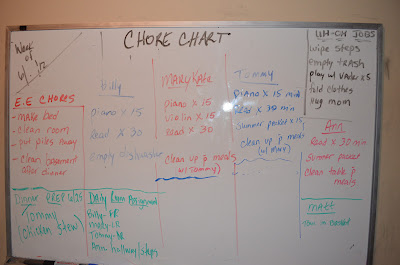 Week
of
CHORE CHART
UH-OH JOBS
wipe steps
empty TRASH
play w/ Vader x 5
fold clothes
hug mom
E.E CHORES
- make Bed
- clean room
- put piles away
- clean basement
after dinner
Billy
piano x 15
Read x 30
empty dishwasher
MARY KATE
piano x 15
Violin x 15
Read x 30
clean up p̄ meals
(w/ Tommy)
Tommy
piano x 15 min
Read x 30 min
summer packet x 15
clean up p̄ meals
(w/ Mary)
Ann
Read x 30 min
summer packet
clean table p̄
meals
Matt
Dinner PREP 6/25
Tommy
(chicken stew)
Daily Room Assignment
Billy-
Mary-LR
Tommy-
Ann hallway/steps